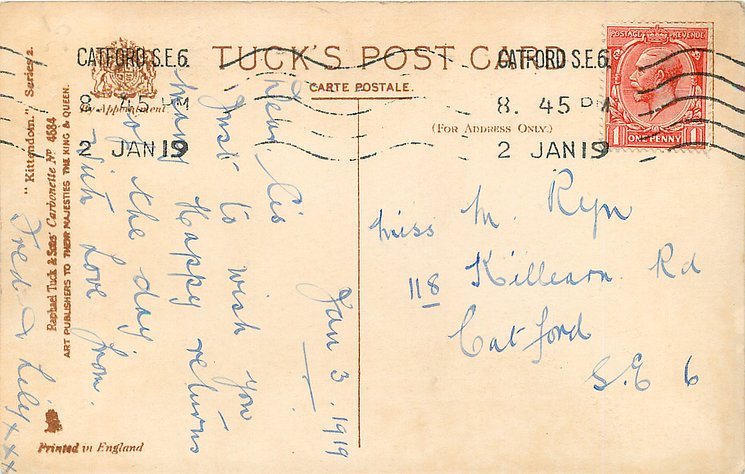 TUCK'S POST CARD
CARTE POSTALE.
(FOR ADDRESS ONLY.)
By Appointment
CATFORD S.E.6.
8. 45 PM
2 JAN 19
CATFORD S.E.6.
8. 45 PM
2 JAN 19
POSTAGE REVENUE
1 ONE PENNY 1
"Kittendom." Series 2.
Raphael Tuck & Sons' Carbonette No 4684
ART PUBLISHERS TO THEIR MAJESTIES THE KING & QUEEN.
Printed in England
Jan 3. 1919
Dear Sis
Just to wish you
many Happy returns
of the day
with Love from
Fred & Lily xxx
Miss M.
118 Killearn Rd
Catford
S.E 6